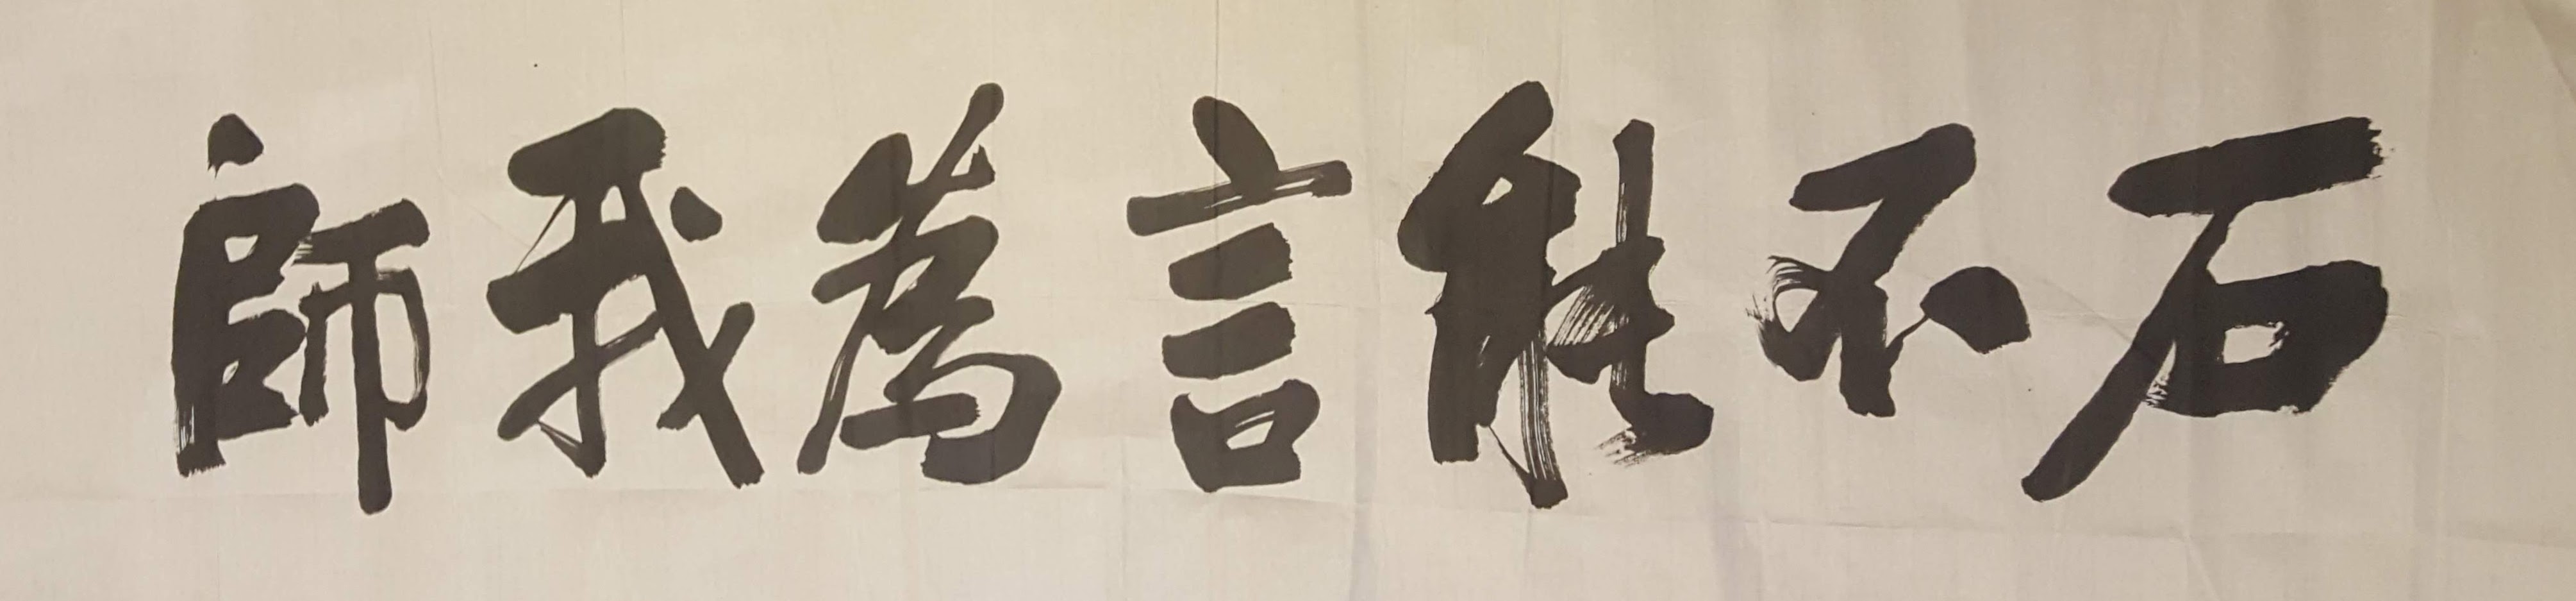 石不能言為我師